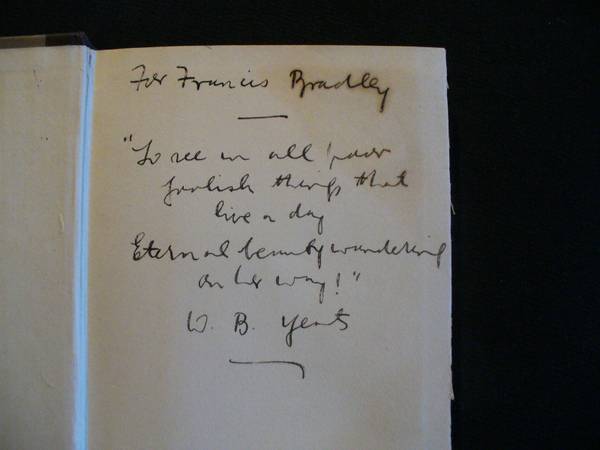 For Francis Bradley
"To see in all poor
foolish things that
live a day
Eternal beauty wandering
on her way!"
W. B. Yeats